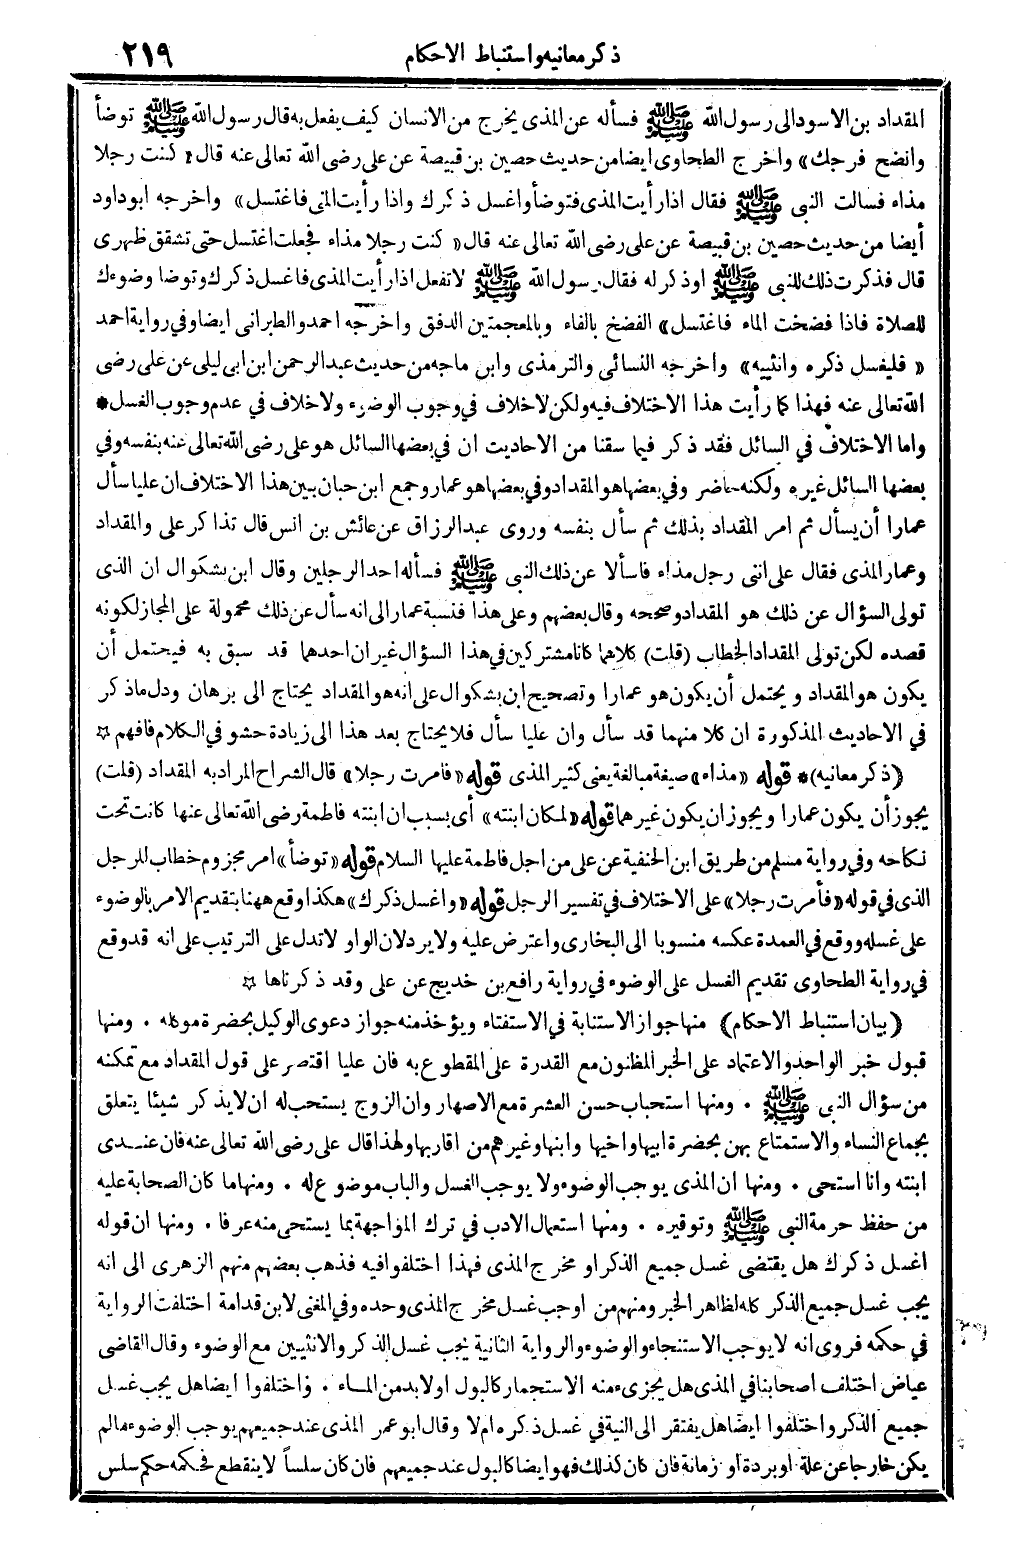 ذكر معانيه واستنباط الاحكام ٢١٩
المقداد بن الاسود الى رسول الله ﷺ فسأله عن المذى يخرج من الانسان كيف يفعل به قال رسول الله ﷺ توضأ
وانضح فرجك» واخرج الطحاوى ايضا من حديث حصين بن قبيصة عن على رضى الله تعالى عنه قال «كنت رجلا
مذاء فسالت النبى ﷺ فقال اذا رأيت المذى فتوضأ واغسل ذكرك واذا رأيت المنى فاغتسل» واخرجه ابو داود
أيضا من حديث حصين بن قبيصة عن على رضى الله تعالى عنه قال «كنت رجلا مذاء فجعلت اغتسل حتى تشقق ظهرى
قال فذكرت ذلك للنبى ﷺ او ذكر له فقال رسول الله ﷺ لاتفعل اذا رأيت المذى فاغسل ذكرك وتوضا وضوءك
للصلاة فاذا فضخت الماء فاغتسل» الفضخ بالفاء وبالمعجمتين الدفق واخرجه احمد والطبرانى ايضا وفى رواية احمد
«فليغسل ذكره وانثييه» واخرجه النسائى والترمذى وابن ماجه من حديث عبد الرحمن ابن ابى ليلى عن على رضى
الله تعالى عنه فهذا كما رأيت هذا الاختلاف فيه ولكن لاخلاف فى وجوب الوضوء ولاخلاف فى عدم وجوب الغسل *
واما الاختلاف فى السائل فقد ذكر فيما سقنا من الاحاديث ان فى بعضها السائل هو على رضى الله تعالى عنه بنفسه وفى
بعضها السائل غيره ولكنه حاضر وفى بعضها هو المقداد وفى بعضها هو عمار وجمع ابن حبان بين هذا الاختلاف ان عليا سأل
عمارا أن يسأل ثم امر المقداد بذلك ثم سأل بنفسه وروى عبد الرزاق عن عائش بن انس قال تذاكر على والمقداد
وعمار المذى فقال على انى رجل مذاء فاسألا عن ذلك النبى ﷺ فسأله احد الرجلين وقال ابن بشكوال ان الذى
تولى السؤال عن ذلك هو المقداد وصححه وقال بعضهم وعلى هذا فنسبة عمار الى انه سأل عن ذلك محمولة على المجاز لكونه
قصده لكن تولى المقداد الخطاب (قلت) كلاهما كانا مشتركين فى هذا السؤال غير ان احدهما قد سبق به فيحتمل أن
يكون هو المقداد ويحتمل أن يكون هو عمارا وتصحيح ابن بشكوال على انه هو المقداد يحتاج الى برهان ودل ما ذكر
فى الاحاديث المذكورة ان كلا منهما قد سأل وان عليا سأل فلا يحتاج بعد هذا الى زيادة حشو فى الكلام فافهم ☆
(ذكر معانيه) * قوله «مذاء» صيغة مبالغة يعنى كثير المذى قوله «فامرت رجلا» قال الشراح المراد به المقداد (قلت)
يجوز أن يكون عمارا ويجوز ان يكون غيرهما قوله «لمكان ابنته» أى بسبب ان ابنته فاطمة رضى الله تعالى عنها كانت تحت
نكاحه وفى رواية مسلم من طريق ابن الحنفية عن على من اجل فاطمة عليها السلام قوله «توضأ» امر مجزوم خطاب للرجل
الذى فى قوله «فأمرت رجلا» على الاختلاف فى تفسير الرجل قوله «واغسل ذكرك» هكذا وقع ههنا بتقديم الامر بالوضوء
على غسله ووقع فى العمدة عكسه منسوبا الى البخارى واعترض عليه ولا يرد لان الواو لا تدل على الترتيب على انه قد وقع
فى رواية الطحاوى تقديم الغسل على الوضوء فى رواية رافع بن خديج عن على وقد ذكرناها ☆
(بيان استنباط الاحكام) منها جواز الاستنابة فى الاستفتاء ويؤخذ منه جواز دعوى الوكيل بحضرة موكله . ومنها
قبول خبر الواحد والاعتماد على الخبر المظنون مع القدرة على المقطوع به فان عليا اقتصر على قول المقداد مع تمكنه
من سؤال النبى ﷺ . ومنها استحباب حسن العشرة مع الاصهار وان الزوج يستحب له ان لا يذكر شيئا يتعلق
بجماع النساء والاستمتاع بهن بحضرة ابيها واخيها وابنها وغيرهم من اقاربها ولهذا قال على رضى الله تعالى عنه فان عندى
ابنته وانا استحى . ومنها ان المذى يوجب الوضوء ولا يوجب الغسل والباب موضوع له . ومنها ما كان الصحابة عليه
من حفظ حرمة النبى ﷺ وتوقيره . ومنها استعمال الادب فى ترك المواجهة بما يستحى منه عرفا . ومنها ان قوله
اغسل ذكرك هل يقتضى غسل جميع الذكر او مخرج المذى فهذا اختلفوا فيه فذهب بعضهم منهم الزهرى الى انه
يجب غسل جميع الذكر كله لظاهر الخبر ومنهم من اوجب غسل مخرج المذى وحده وفى المغنى لابن قدامة اختلفت الرواية
فى حكمه فروى انه لا يوجب الاستنجاء والوضوء والرواية الثانية يجب غسل الذكر والانثيين مع الوضوء وقال القاضى
عياض اختلف اصحابنا فى المذى هل يجزىء منه الاستجمار كالبول او لابد من الماء . واختلفوا ايضا هل يجب غسل
جميع الذكر واختلفوا ايضا هل يفتقر الى النية فى غسل ذكره ام لا وقال ابو عمر المذى عند جميعهم يوجب الوضوء مالم
يكن خارجا عن علة او بردة أو زمانة فان كان كذلك فهو ايضا كالبول عند جميعهم فان كان سلساً لا ينقطع فحكمه حكم سلس